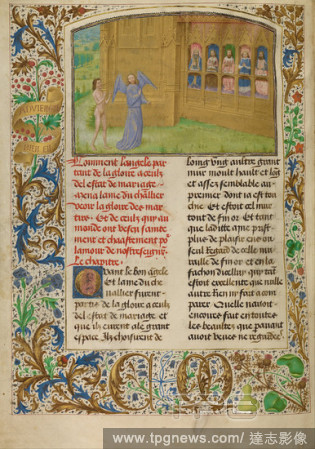 Comment langele par
tant de la gloire a ceulx
del estat de mariage
mena lame du chlier
veoir la gloire des mar
tirs. Et de ceulx quy au
monde ont vescu sainte
ment et chastement po'
lamour de nostreseignr
Le chapitre.
Quant le bon angele
et lame du che
uallier furent
partis de la gloire a ceulx
del estat de mariage et
que ilz eurent ale grant
espace Ilz choisirent de
loing vng aultre grant
mur moult hault et long
et assez semblable au
premier dont ia est tou
chie. Et estoit cel mur
tout de fin or. Et tant
que la ditte
plus de plaisir
seul regard de celle mu
raille de fin or et en la
fachon dicelluy quy tant
estoit excellente que nulle
autre rien
parer
encores fait en toutes
les beaultez que parauant
auoit veues ne regardees
www.tpgnews.com/達志影像